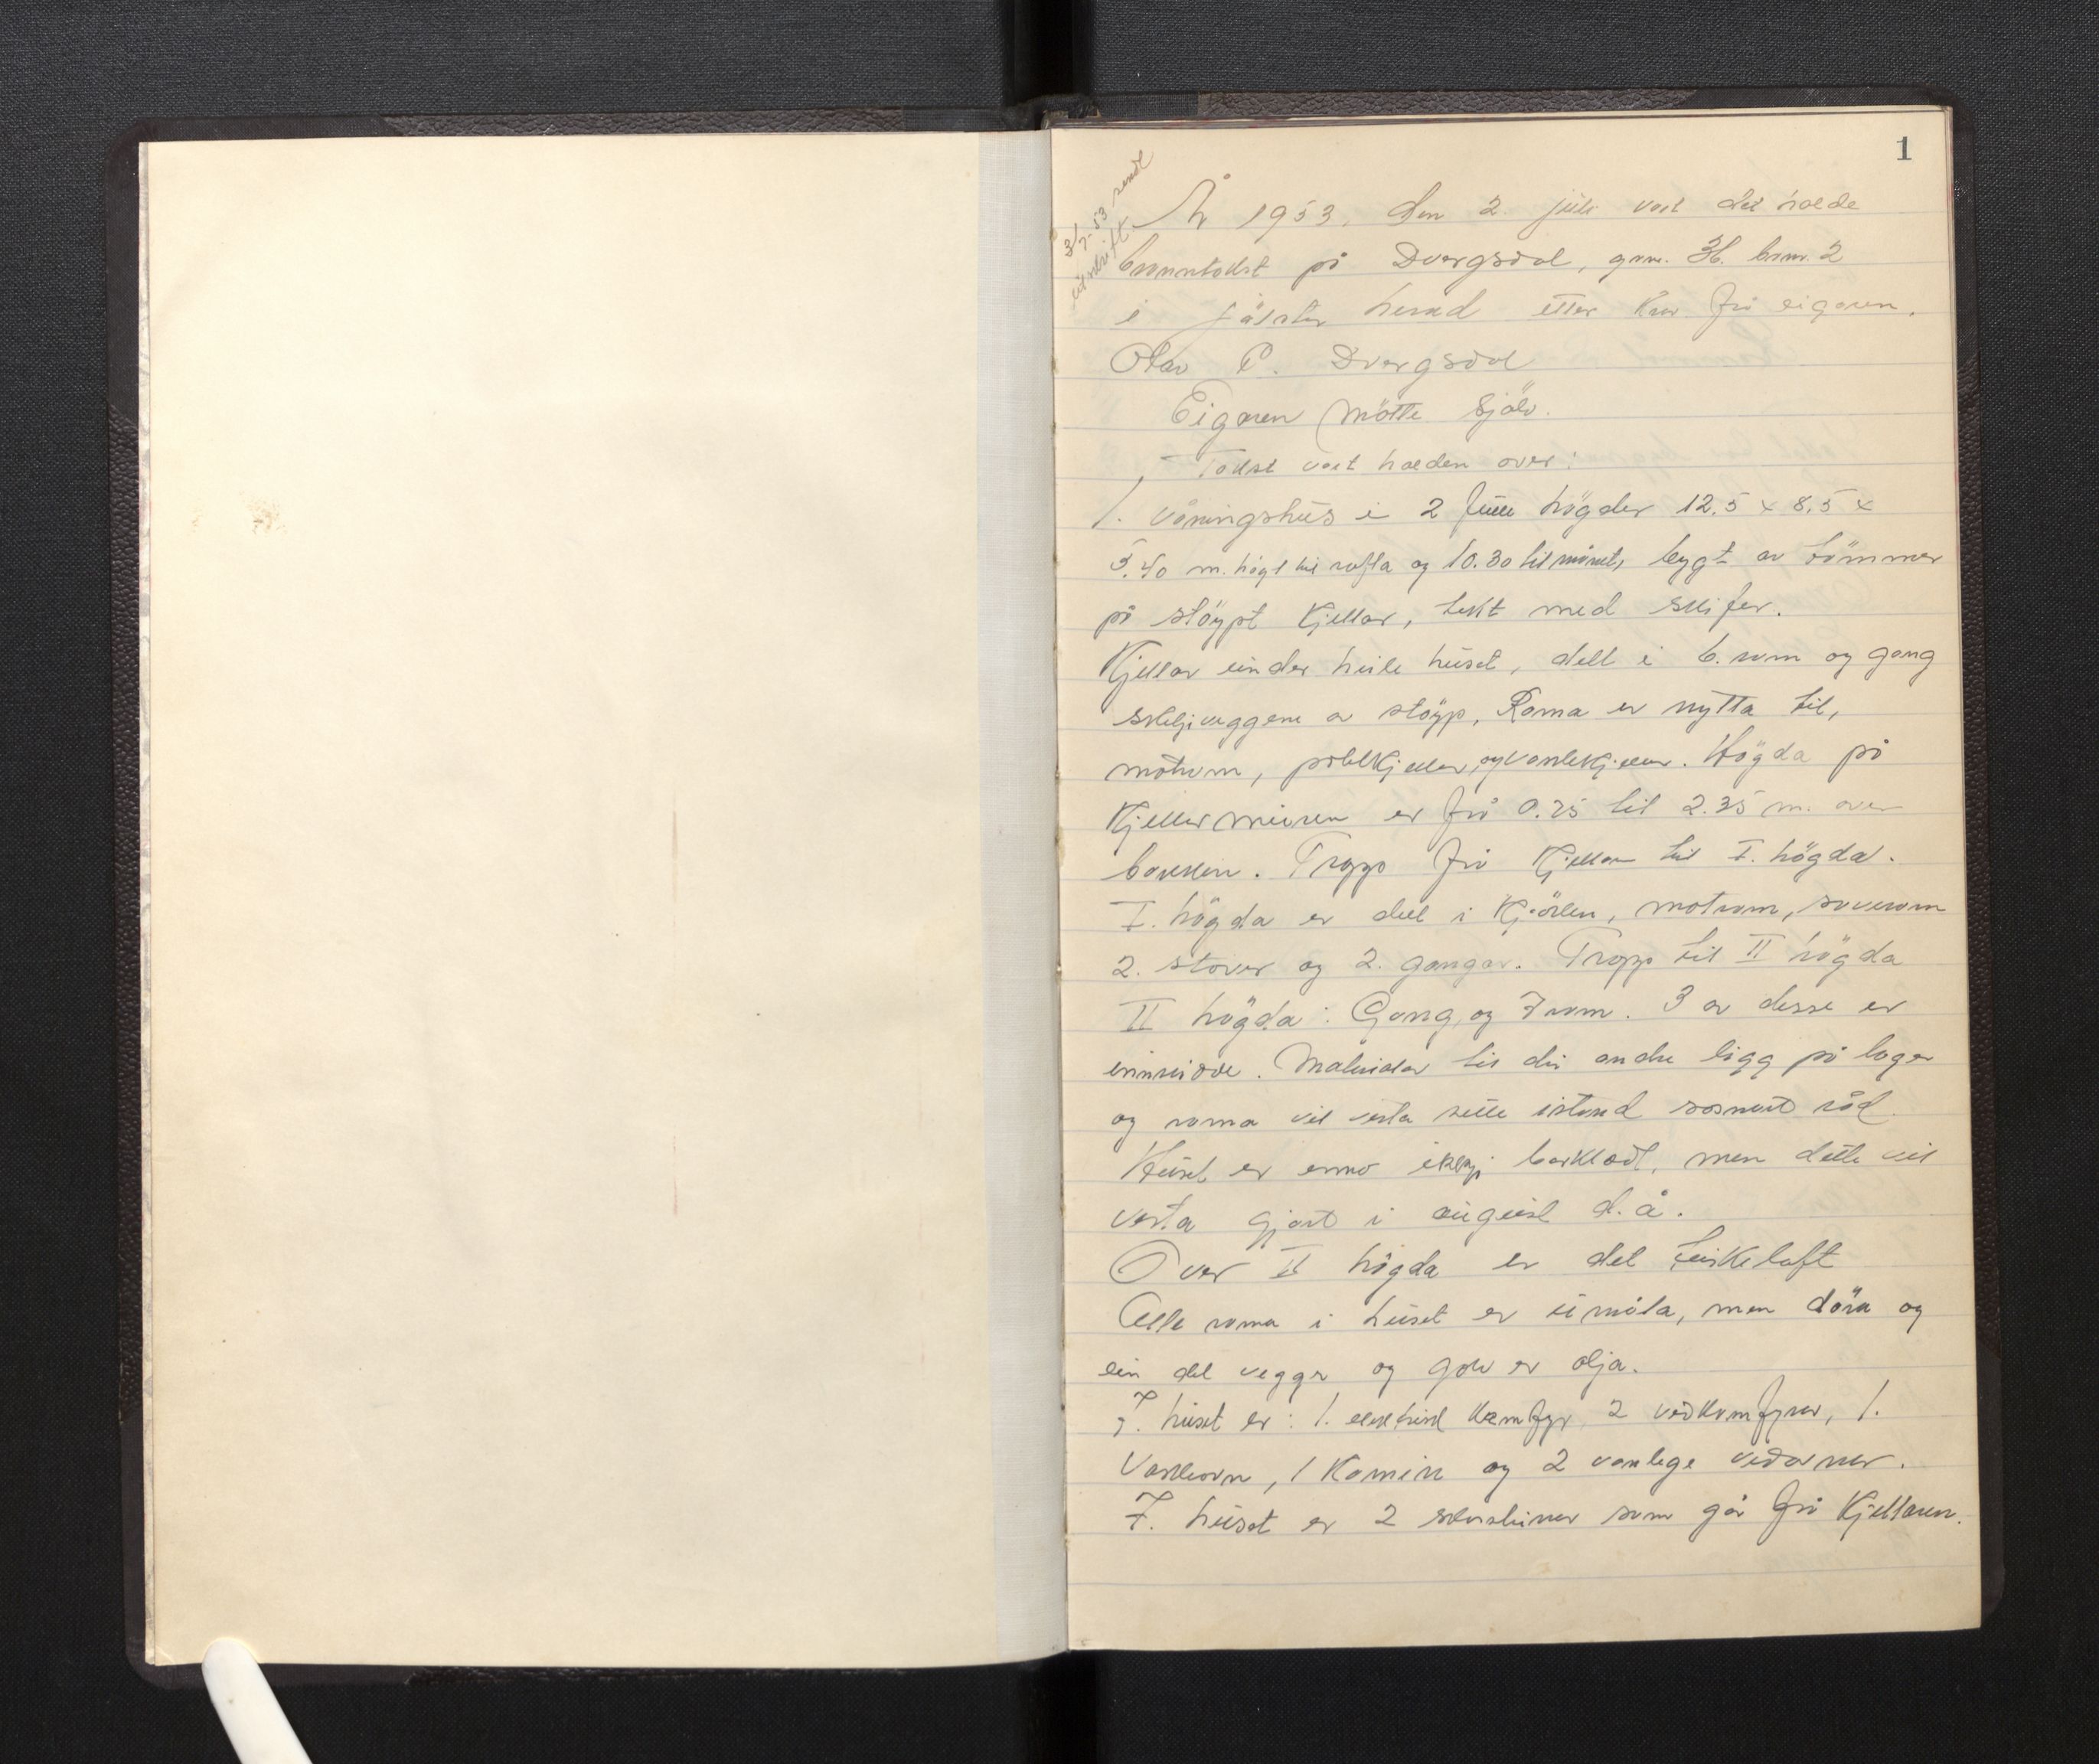 1
3/7-53 sendt
utskrift.
År 1953, den 2. juli vart det halde
branntakst på Dvergsdal, gnr. 36. bnr. 2
i Jölster herad etter krav frå eigaren,
Olav P. Dvergsdal
Eigaren mötte sjölv.
Takst vart halden over:
1. Våningshus i 2 fulle högder 12.5 x 8.5 x
5.40 m. högt til rafta og 10.30 til mönet, bygt av tömmer
på stöypt kjellar, tekt med skifer.
Kjellar under heile huset, delt i 6. rom og gang
skiljeveggene av stöyp, Roma er nytta til,
matrom, potetkjellar, og vaskekjellar. Högda på
Kjellarmuren er frå 0.25 til 2.35 m. over
bakken. Trapp frå Kjellar til I. högda.
I. högda er delt i kjöken, matrom, soverom
2. stover og 2. gangar. Trapp til II högda
II högda: Gang og 7 rom. 3 av desse er
innreidde. Materialar til dei andre ligg på lager
og roma vil verta sette istand sosnart råd.
Huset er enno ikkje bordkledt, men dette vil
verta gjort i august d.å.
Over II högda er det törkeloft
Alle roma i huset er umåla, men dörer og
ein del vegger og golv er olja.
I. huset er: 1. elektrisk komfyr, 2 vedkomfyrar, 1.
Vaskeovn, 1 Kamin og 2 vanlege vedovner.
I. huset er 2 skorsteiner som går frå Kjellaren.